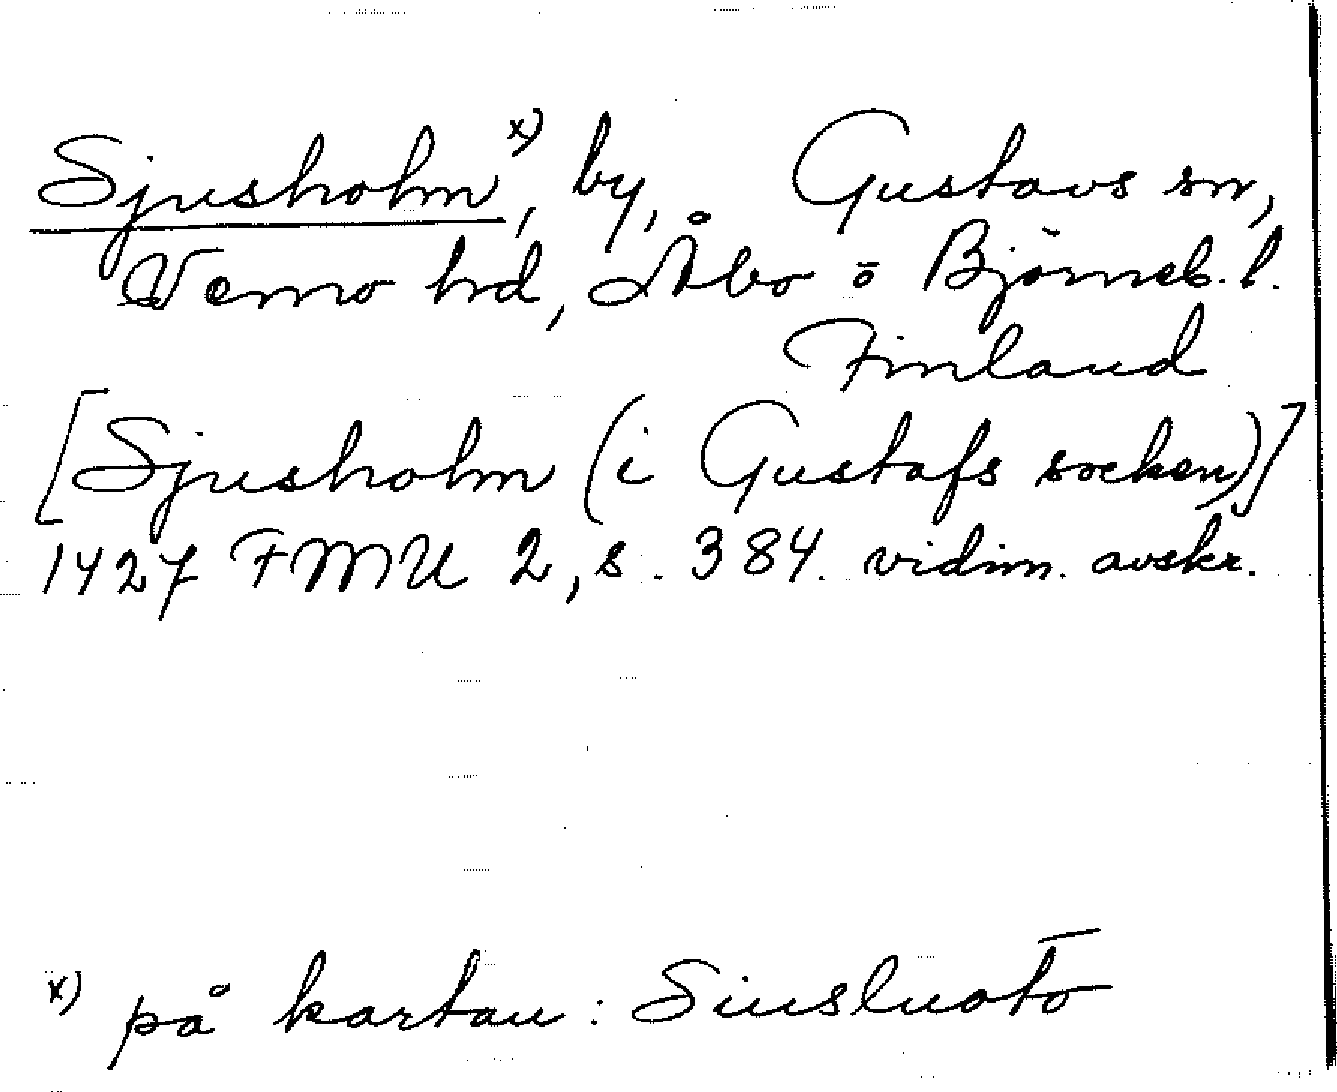 Sjusholm x), by, Gustavs sn,
Vemo hd, Åbo o Björneb. l.
Finland
[Sjusholm (i Gustafs socken)]
1427 FMU 2, s. 384. vidim. avskr.
x) på kartan: Siusluoto